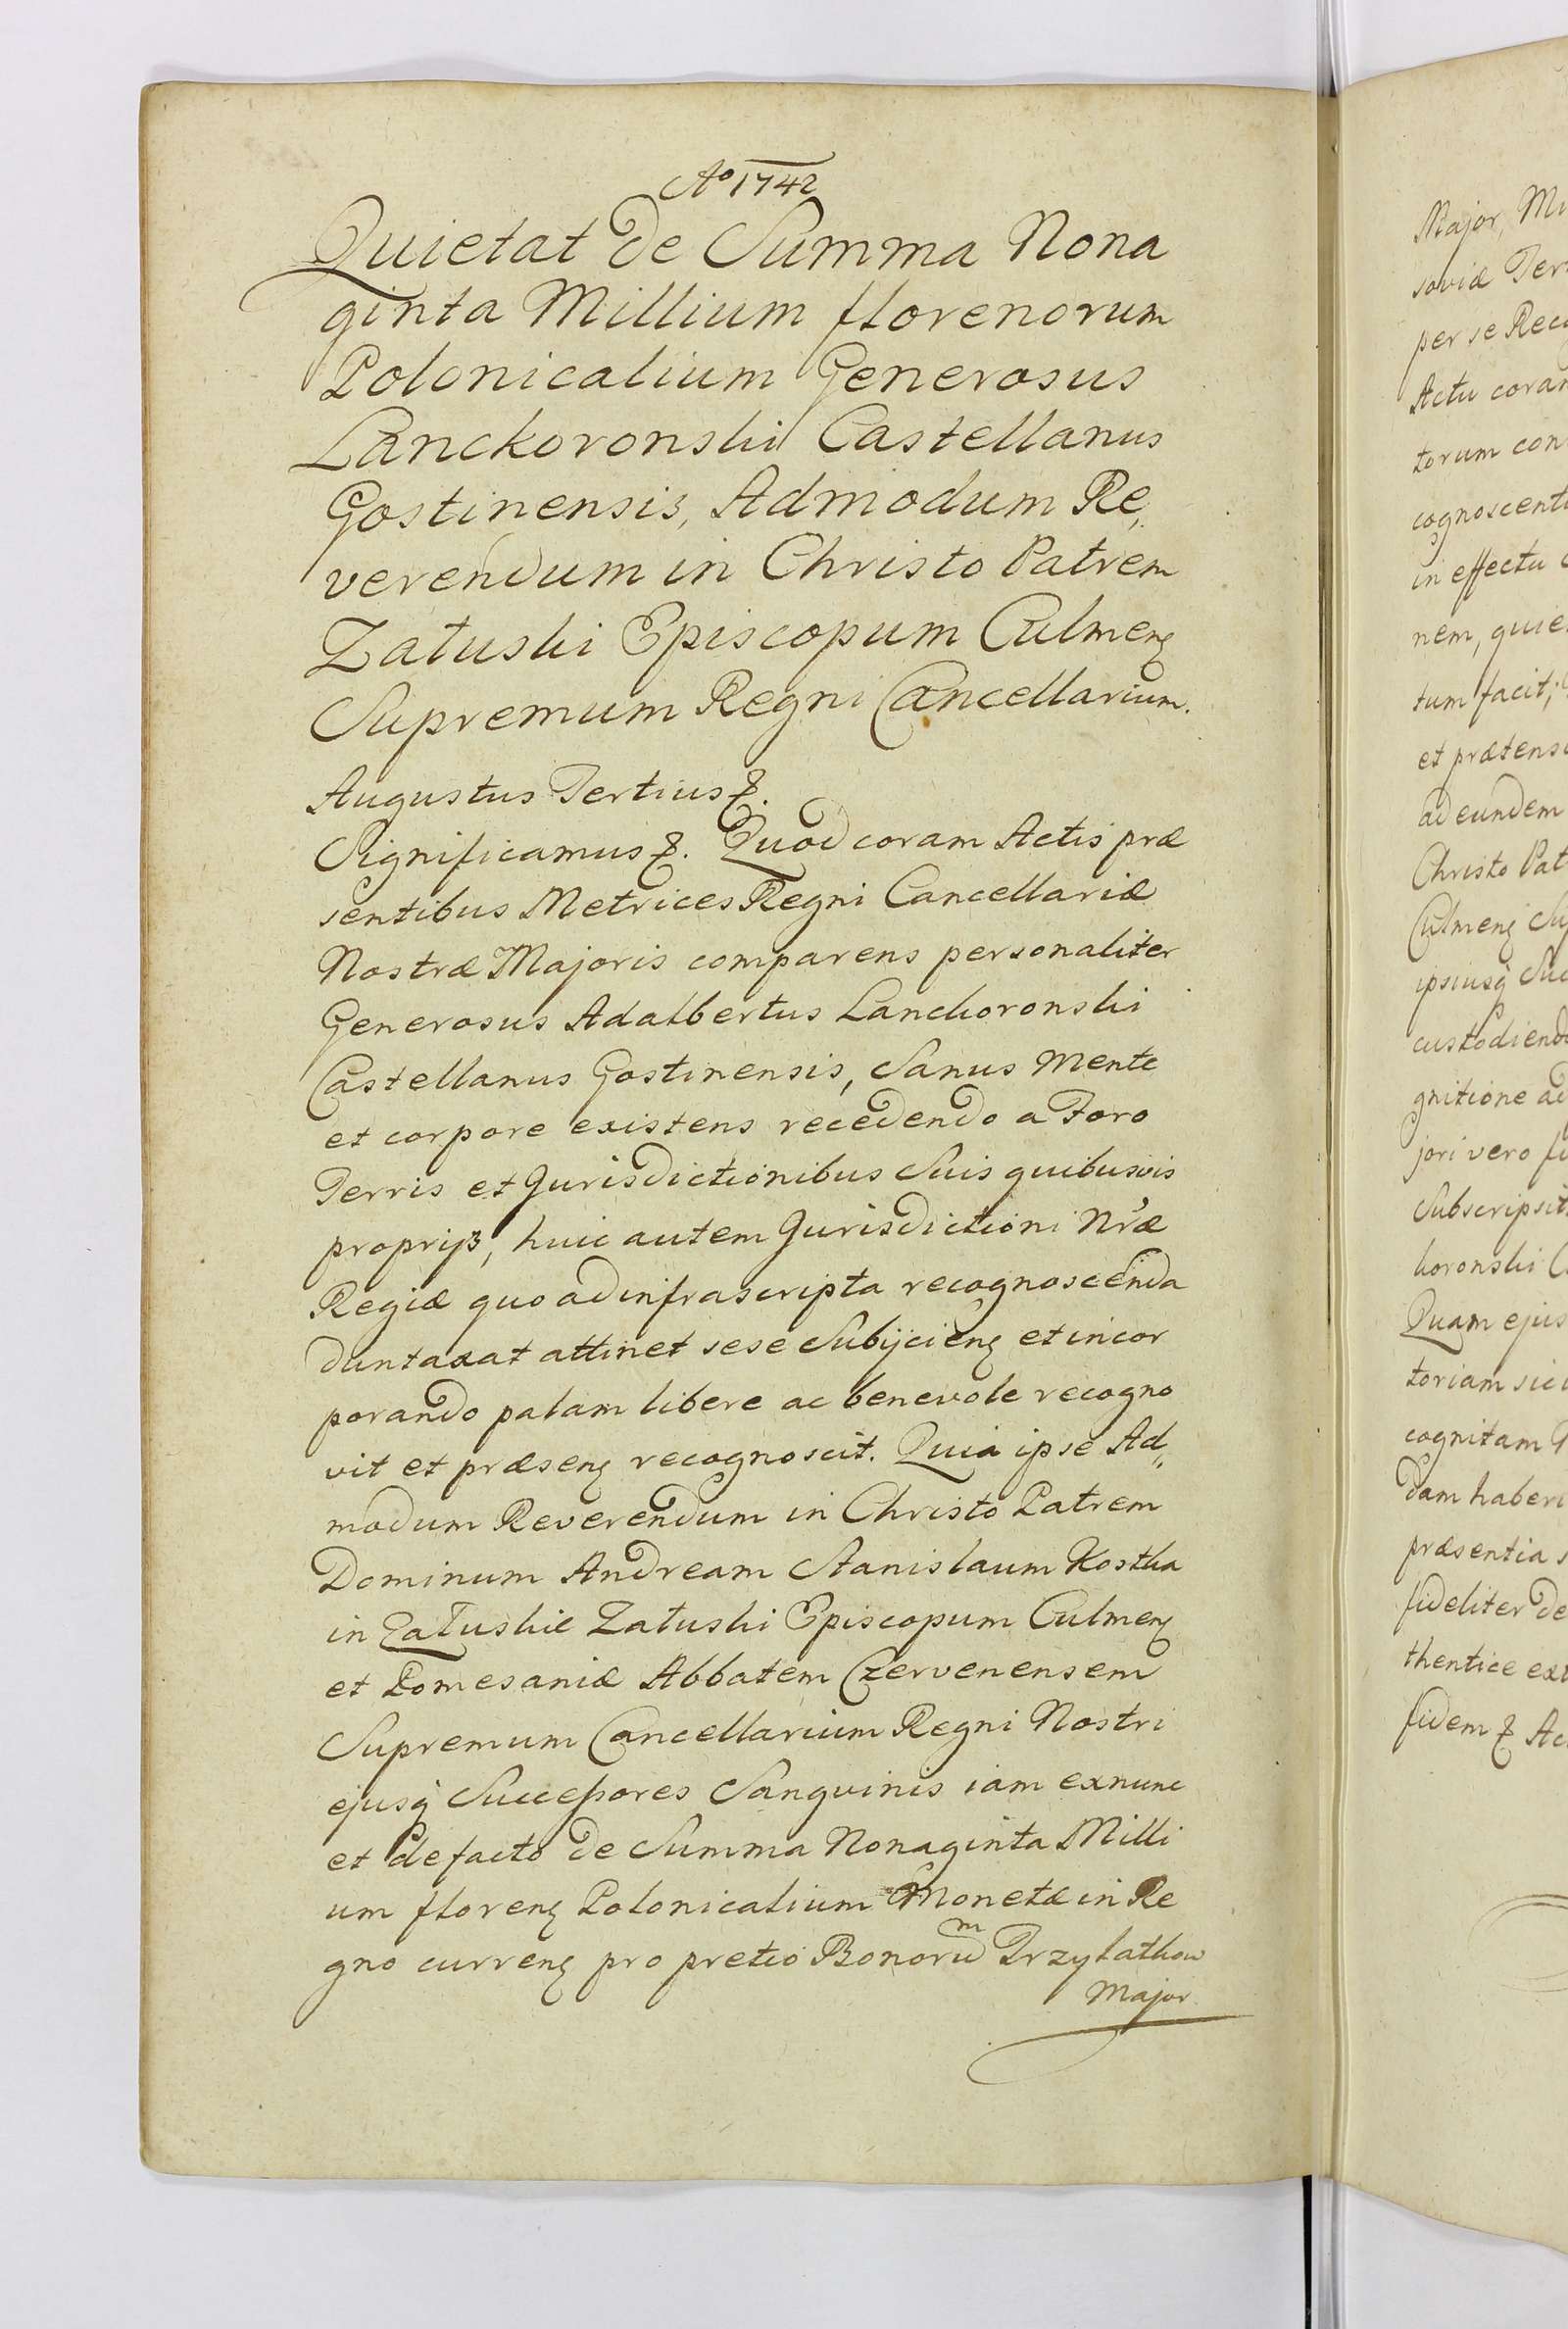 Aº 1742
Quietat de Summa Nona
ginta Millium florenorum
Polonicalium Generosus
Lanckoronski Castellanus
Gostinensis, Admodum Re,,
verendum in Christo Patrem
Zatuski Episcopum Culmenꝭ
Supremum Regni Cancellarium.
Augustus Tertius ꝛ.
Significamus ꝛ. Quod coram Actis præ
sentibus Metrices Regni Cancellariæ
Nostræ Majoris comparens personaliter
Generosus Adalbertus Lanckoronski
Castellanus Gostinensis, Sanus Mente
et corpore existens recedendo a Foro
Terris et Jurisdictionibus Suis quibusvis
proprijs, huic autem Jurisdictioni Nr̃æ
Regiæ quo ad infrascripta recognoscenda
duntaxat attinet sese Subijcienꝭ et incor
porando palam libere ac benevole recogno
vit et præsenꝭ recognoscit. Quia ipse Ad,,
modum Reverendum in Christo Patrem
Dominum Andream Stanislaum Kostka
in Załuskie Zatuski Episcopum Culmenꝭ
et Pomesaniæ Abbatem Czervenensem
Supremum Cancellarium Regni Nostri
ejusq̃ Successores Sanguinis iam exnunc
et defacto de Summa Nonaginta Milli
um florenꝭ Polonicalium Monetæ in Re
gno currenꝭ pro pretio Bonorum Przylatkow
Major
Major, Mi
soviæ Ter
per se Rec
Actu coram
torum con
cognoscent
in effectu
nem, quie
tum facit;
et prætens
ad eundem
Christo Pat
Culmenꝭ Su
ipsiusq̃ Suc
custodiend
gnitione ad
jori vero fi
Subscripsit
koronski C
Quam ejus
toriam sic
cognitam
dam haberi
præsentia s
fideliter de
thentice ext
fidem ꝛ Ac